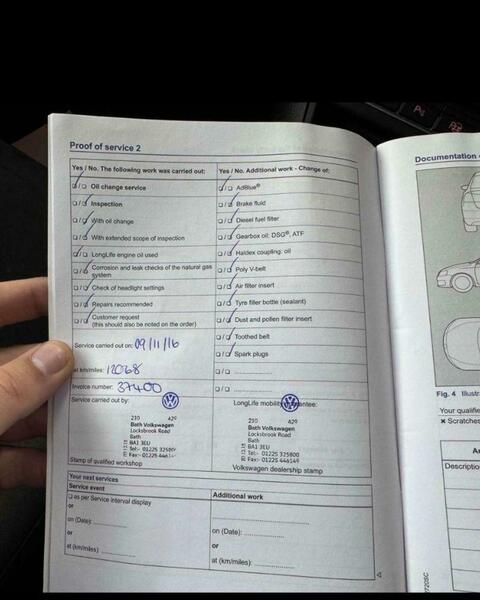 Proof of service 2
Yes / No. The following work was carried out:
Oil change service
Inspection
With oil change
With extended scope of inspection
LongLife engine oil used
Corrosion and leak checks of the natural gas
system
Check of headlight settings
Repairs recommended
Customer request
(this should also be noted on the order)
Service carried out on: 09/11/16
at km/miles: 12068
Invoice number: 37400
Service carried out by:
210 429
Bath Volkswagen
Locksbrook Road
Bath
BA1 3EU
Tel:- 01225 325800
Fax:- 01225
Stamp of qualified workshop
Yes / No. Additional work - Change of:
AdBlue®
Brake fluid
Diesel fuel filter
Gearbox oil: DSG®, ATF
Haldex coupling: oil
Poly V-belt
Air filter insert
Tyre filler bottle (sealant)
Dust and pollen filter insert
Toothed belt
Spark plugs
LongLife mobility guarantee:
210 429
Bath Volkswagen
Locksbrook Road
Bath
BA1 3EU
Tel:- 01225 325800
Fax:- 01225 446149
Volkswagen dealership stamp
Your next services
Service event
as per Service interval display
or
on (Date):
or
at (km/miles)
Additional work
on (Date):
or
at (km/miles):
Documentation
Fig. 4
Your qualifie
× Scratches
Description